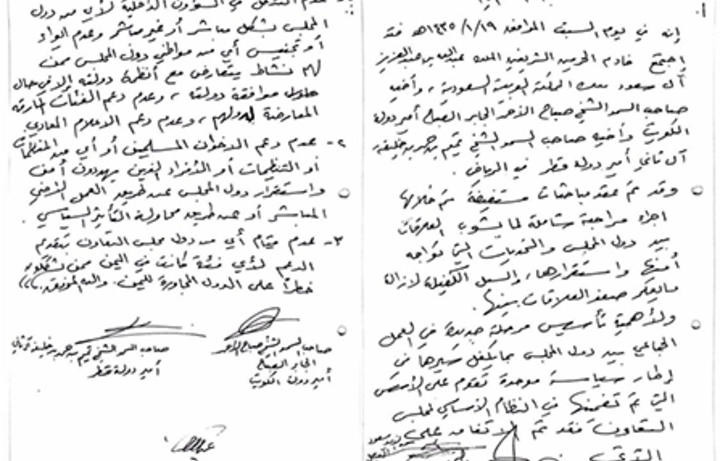 إنه في يوم السبت الموافق ١٩/١/١٤٣٥هـ فقد
اجتمع خادم الحرمين الشريفين الملك عبدالله بن عبدالعزيز
آل سعود ملك المملكة العربية السعودية، وأخيه
صاحب السمو الشيخ صباح الأحمد الجابر الصباح أمير دولة
الكويت وأخيه صاحب السمو الشيخ تميم بن حمد بن خليفة
آل ثاني أمير دولة قطر في الرياض.
وقد تم عقد مباحثات مستفيضة تم خلالها
اجراء مراجعة شاملة لما يشوب العلاقات
بين دول المجلس والتحديات التي تواجه
أمنها واستقرارها، والسبل الكفيلة لإزالة
ما يعكر صفو العلاقات بينها.
ولأهمية تأسيس مرحلة جديدة في العمل
الجماعي بين دول المجلس بما يكفل سيرها في
إطار سياسة موحدة تقوم على الأسس
التي تم تضمنها في النظام الأساسي لمجلس
التعاون فقد تم الاتفاق على
التدخل في الشؤون الداخلية لأي من دول
المجلس بشكل مباشر أو غير مباشر وعدم ايواء
أو تجنيس أي من مواطني دول المجلس ممن
لهم نشاط يتعارض مع أنظمة دولته إلا في حال
موافقة دولته، وعدم دعم الفئات المارقة
المعارضة لدولهم، وعدم دعم الاعلام المعادي.
٢- عدم دعم الاخوان المسلمين أو أي من المنظمات
أو التنظيمات أو الأفراد الذين يهددون أمن
واستقرار دول المجلس عن طريق العمل الأمني
المباشر أو عن طريق محاولة التأثير السياسي
٣- عدم قيام أي من دول مجلس التعاون بتقديم
الدعم لأي فئة كانت في اليمن ممن يشكلون
خطراً على الدول المجاورة لليمن. والله الموفق،،،
صاحب السمو الشيخ صباح الأحمد
الجابر الصباح
أمير دولة الكويت
صاحب السمو الشيخ تميم بن حمد بن خليفة آل ثاني
أمير دولة قطر